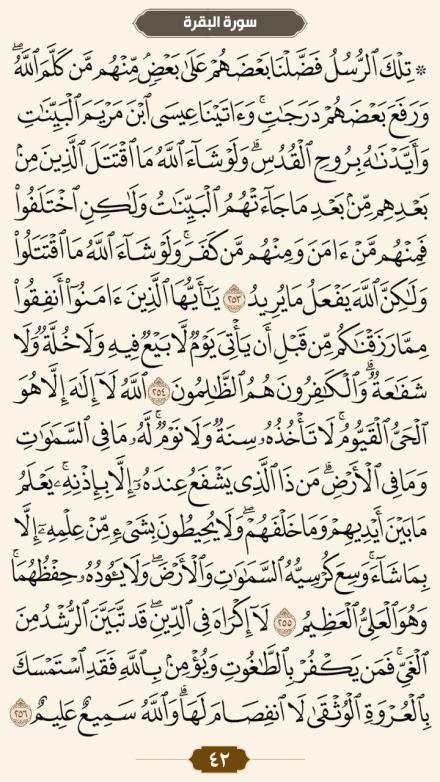 سورة البقرة
۞ تِلْكَ ٱلرُّسُلُ فَضَّلْنَا بَعْضَهُمْ عَلَىٰ بَعْضٍۘ مِّنْهُم مَّن كَلَّمَ ٱللَّهُۖ
وَرَفَعَ بَعْضَهُمْ دَرَجَٰتٍۚ وَءَاتَيْنَا عِيسَى ٱبْنَ مَرْيَمَ ٱلْبَيِّنَٰتِ
وَأَيَّدْنَٰهُ بِرُوحِ ٱلْقُدُسِۗ وَلَوْ شَآءَ ٱللَّهُ مَا ٱقْتَتَلَ ٱلَّذِينَ مِنۢ
بَعْدِهِم مِّنۢ بَعْدِ مَا جَآءَتْهُمُ ٱلْبَيِّنَٰتُ وَلَٰكِنِ ٱخْتَلَفُوا۟
فَمِنْهُم مَّنْ ءَامَنَ وَمِنْهُم مَّن كَفَرَۚ وَلَوْ شَآءَ ٱللَّهُ مَا ٱقْتَتَلُوا۟
وَلَٰكِنَّ ٱللَّهَ يَفْعَلُ مَا يُرِيدُ ٢٥٣ يَٰٓأَيُّهَا ٱلَّذِينَ ءَامَنُوٓا۟ أَنفِقُوا۟
مِمَّا رَزَقْنَٰكُم مِّن قَبْلِ أَن يَأْتِىَ يَوْمٌ لَّا بَيْعٌ فِيهِ وَلَا خُلَّةٌ وَلَا
شَفَٰعَةٌۗ وَٱلْكَٰفِرُونَ هُمُ ٱلظَّٰلِمُونَ ٢٥٤ ٱللَّهُ لَآ إِلَٰهَ إِلَّا هُوَ
ٱلْحَىُّ ٱلْقَيُّومُۚ لَا تَأْخُذُهُۥ سِنَةٌ وَلَا نَوْمٌۚ لَّهُۥ مَا فِى ٱلسَّمَٰوَٰتِ
وَمَا فِى ٱلْأَرْضِۗ مَن ذَا ٱلَّذِى يَشْفَعُ عِندَهُۥٓ إِلَّا بِإِذْنِهِۦۚ يَعْلَمُ
مَا بَيْنَ أَيْدِيهِمْ وَمَا خَلْفَهُمْۖ وَلَا يُحِيطُونَ بِشَىْءٍ مِّنْ عِلْمِهِۦٓ إِلَّا
بِمَا شَآءَۚ وَسِعَ كُرْسِيُّهُ ٱلسَّمَٰوَٰتِ وَٱلْأَرْضَۖ وَلَا يَـُٔودُهُۥ حِفْظُهُمَاۚ
وَهُوَ ٱلْعَلِىُّ ٱلْعَظِيمُ ٢٥٥ لَآ إِكْرَاهَ فِى ٱلدِّينِۖ قَد تَّبَيَّنَ ٱلرُّشْدُ مِنَ
ٱلْغَىِّۚ فَمَن يَكْفُرْ بِٱلطَّٰغُوتِ وَيُؤْمِنۢ بِٱللَّهِ فَقَدِ ٱسْتَمْسَكَ
بِٱلْعُرْوَةِ ٱلْوُثْقَىٰ لَا ٱنفِصَامَ لَهَاۗ وَٱللَّهُ سَمِيعٌ عَلِيمٌ ٢٥٦
٤٢